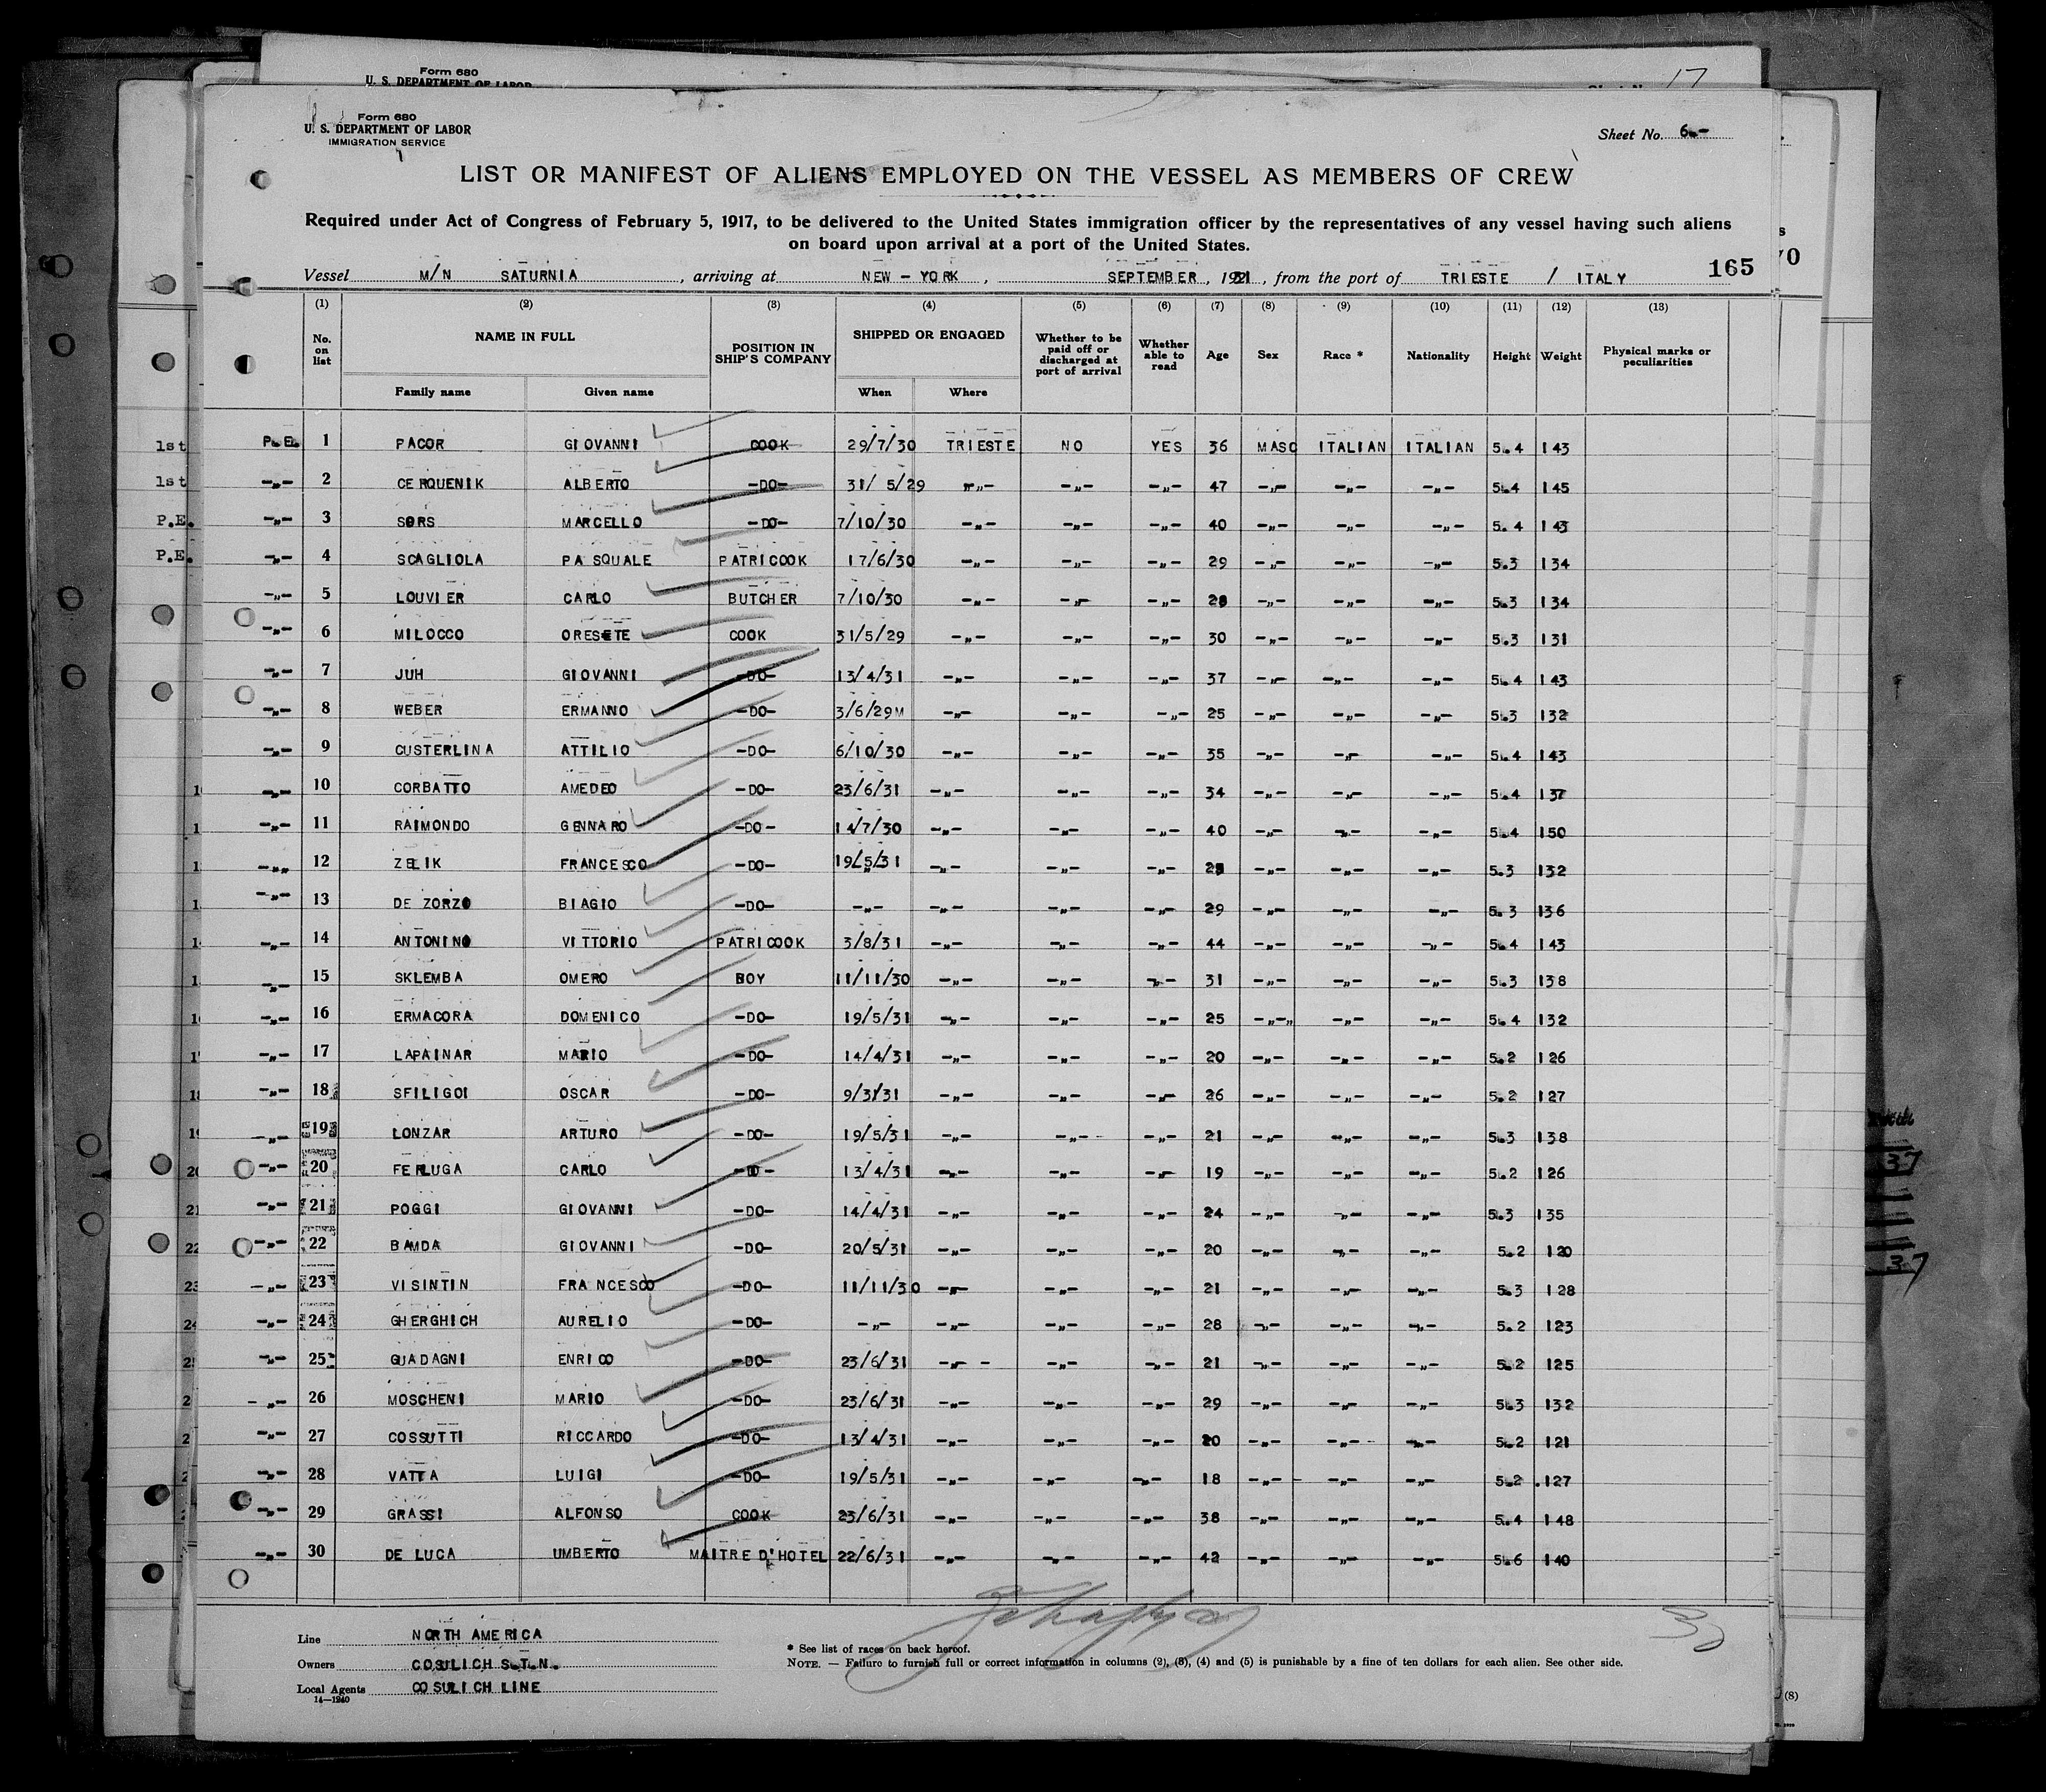 Form 680
U. S. DEPARTMENT OF LABOR
17
Form 680
U. S. DEPARTMENT OF LABOR
IMMIGRATION SERVICE
Sheet No. 6.-
LIST OR MANIFEST OF ALIENS EMPLOYED ON THE VESSEL AS MEMBERS OF CREW
Required under Act of Congress of February 5, 1917, to be delivered to the United States immigration officer by the representatives of any vessel having such aliens
on board upon arrival at a port of the United States.
165
Vessel M/N SATURNIA , arriving at NEW - YORK , SEPTEMBER , 1931 , from the port of TRIESTE / ITALY
(1) (2) (3) (4) (5) (6) (7) (8) (9) (10) (11) (12) (13)
No. on list NAME IN FULL POSITION IN SHIP'S COMPANY SHIPPED OR ENGAGED Whether to be paid off or discharged at port of arrival Whether able to read Age Sex Race * Nationality Height Weight Physical marks or peculiarities
Family name Given name When Where
1st P.E. 1 PACOR GIOVANNI COOK 29/7/30 TRIESTE NO YES 36 MASC ITALIAN ITALIAN 5.4 143
1st -"- 2 CERQUENIK ALBERTO -DO- 31/ 5/29 -"- -"- -"- 47 -"- -"- -"- 5.4 145
P.E. -"- 3 SORS MARCELLO -DO- 7/10/30 -"- -"- -"- 40 -"- -"- -"- 5.4 143
P.E. -"- 4 SCAGLIOLA PASQUALE PATRICOOK 17/6/30 -"- -"- -"- 29 -"- -"- -"- 5.3 134
-"- 5 LOUVIER CARLO BUTCHER 7/10/30 -"- -"- -"- 28 -"- -"- -"- 5.3 134
-"- 6 MILOCCO ORESETE COOK 31/5/29 -"- -"- -"- 30 -"- -"- -"- 5.3 131
-"- 7 JUH GIOVANNI -DO- 13/4/31 -"- -"- -"- 37 -"- -"- -"- 5.4 143
-"- 8 WEBER ERMANNO -DO- 3/6/29M -"- -"- -"- 25 -"- -"- -"- 5.3 132
-"- 9 CUSTERLINA ATTILIO -DO- 6/10/30 -"- -"- -"- 35 -"- -"- -"- 5.4 143
-"- 10 CORBATTO AMEDEO -DO- 23/6/31 -"- -"- -"- 34 -"- -"- -"- 5.4 137
-"- 11 RAIMONDO GENNARO -DO- 14/7/30 -"- -"- -"- 40 -"- -"- -"- 5.4 150
-"- 12 ZELIK FRANCESCO -DO- 19/5/31 -"- -"- -"- -"- -"- -"- 5.3 132
-"- 13 DE ZORZO BIAGIO -DO- -"- -"- -"- -"- 29 -"- -"- -"- 5.3 136
-"- 14 ANTONINO VITTORIO PATRICOOK 3/8/31 -"- -"- -"- 44 -"- -"- -"- 5.4 143
-"- 15 SKLEMBA OMERO BOY 11/11/30 -"- -"- -"- 31 -"- -"- -"- 5.3 138
-"- 16 ERMACORA DOMENICO -DO- 19/5/31 -"- -"- -"- 25 -"-" -"- -"- 5.4 132
-"- 17 LAPAINAR MARIO -DO- 14/4/31 -"- -"- -"- 20 -"- -"- -"- 5.2 126
-"- 18 SFILIGOI OSCAR -DO- 9/3/31 -"- -"- -"- 26 -"- -"- -"- 5.2 127
-"- 19 LONZAR ARTURO -DO- 19/5/31 -"- -"- -"- 21 -"- -"- -"- 5.3 138
-"- 20 FERLUGA CARLO -DO- 13/4/31 -"- -"- -"- 19 -"- -"- -"- 5.2 126
-"- 21 POGGI GIOVANNI -DO- 14/4/31 -"- -"- -"- 24 -"- -"- -"- 5.3 135
-"- 22 BAMDA GIOVANNI -DO- 20/5/31 -"- -"- -"- 20 -"- -"- -"- 5.2 120
-"- 23 VISINTIN FRANCESCO -DO- 11/11/30 -"- -"- -"- 21 -"- -"- -"- 5.3 128
-"- 24 GHERGHICH AURELIO -DO- -"- -"- -"- -"- 28 -"- -"- -"- 5.2 123
-"- 25 GUADAGNI ENRICO -DO- 23/6/31 -"- - -"- -"- 21 -"- -"- -"- 5.2 125
-"- 26 MOSCHENI MARIO -DO- 23/6/31 -"- -"- -"- 29 -"- -"- -"- 5.3 132
-"- 27 COSSUTTI RICCARDO -DO- 13/4/31 -"- -"- -"- 20 -"- -"- -"- 5.2 121
-"- 28 VATTA LUIGI -DO- 19/5/31 -"- -"- -"- 18 -"- -"- -"- 5.2 .127
-"- 29 GRASSI ALFONSO COOK 23/6/31 -"- -"- -"- 38 -"- -"- -"- 5.4 148
-"- 30 DE LUCA UMBERTO MAITRE D'HOTEL 22/6/31 -"- -"- -"- 42 -"- -"- -"- 5.6 140
Line NORTH AMERICA
Owners COSULICH S.T.N.
Local Agents COSULICH LINE
14—1240
* See list of races on back hereof.
NOTE. — Failure to furnish full or correct information in columns (2), (3), (4) and (5) is punishable by a fine of ten dollars for each alien. See other side.
30
37
37
(8)